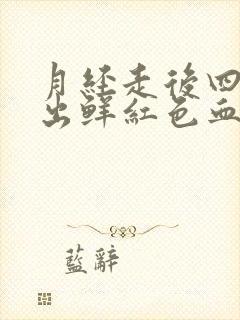 月経走後四
出鮮紅色血
藍辭